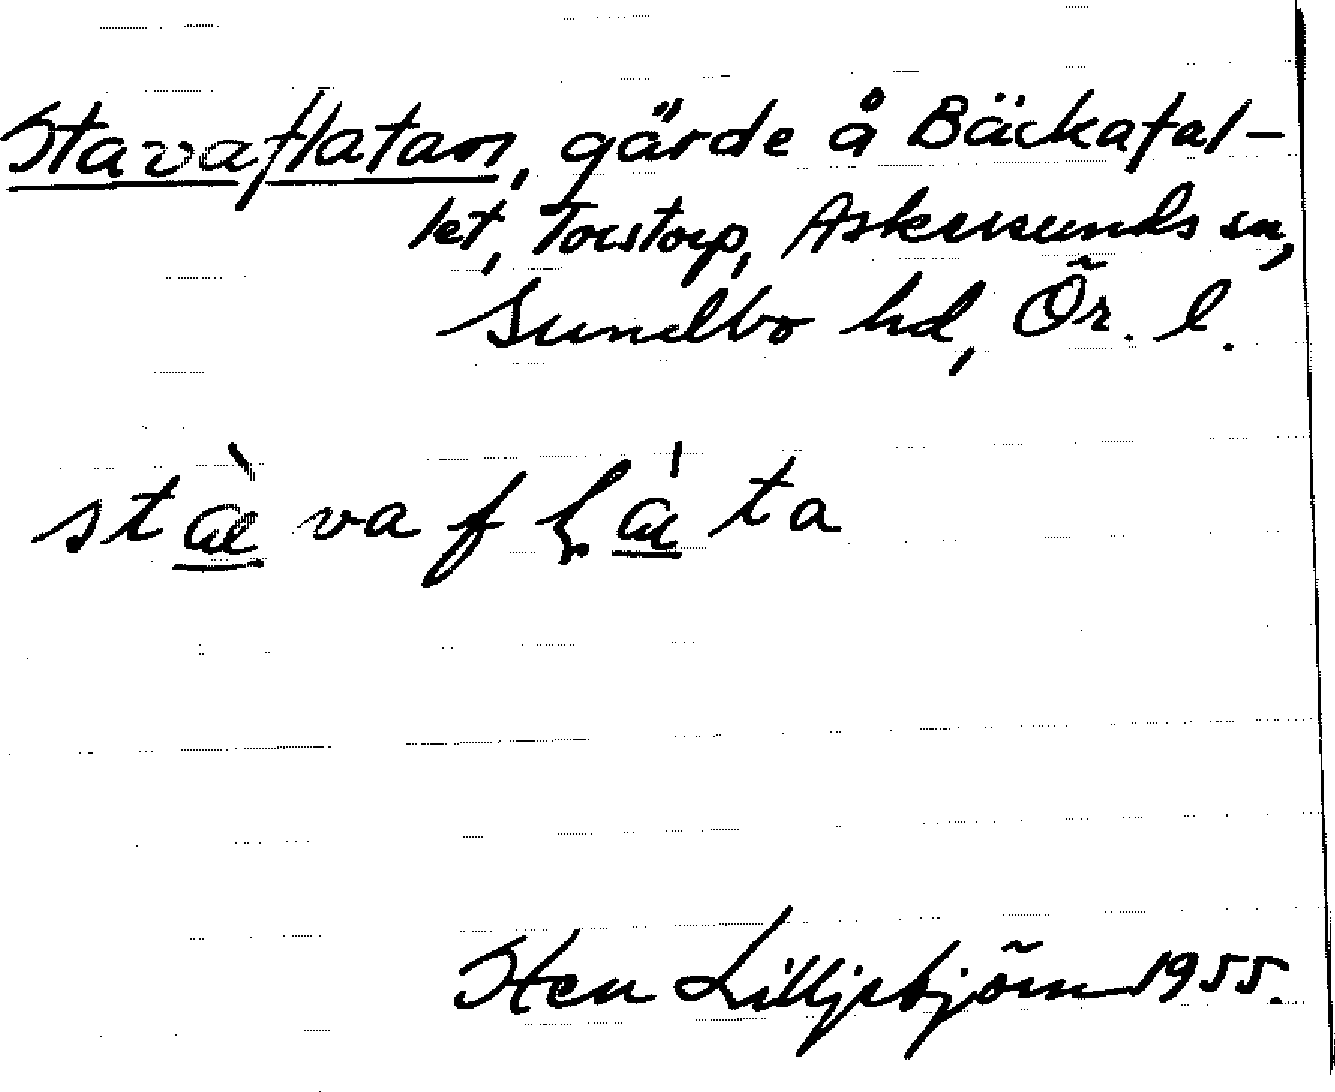 Stavaflatan, gärde å Bäckafal-
let, Torstorp, Askersunds sn,
Sundbo hd, Ör. l.
stæ̀vafɽæ̀ta
Sten Lilljebjörn 1955.